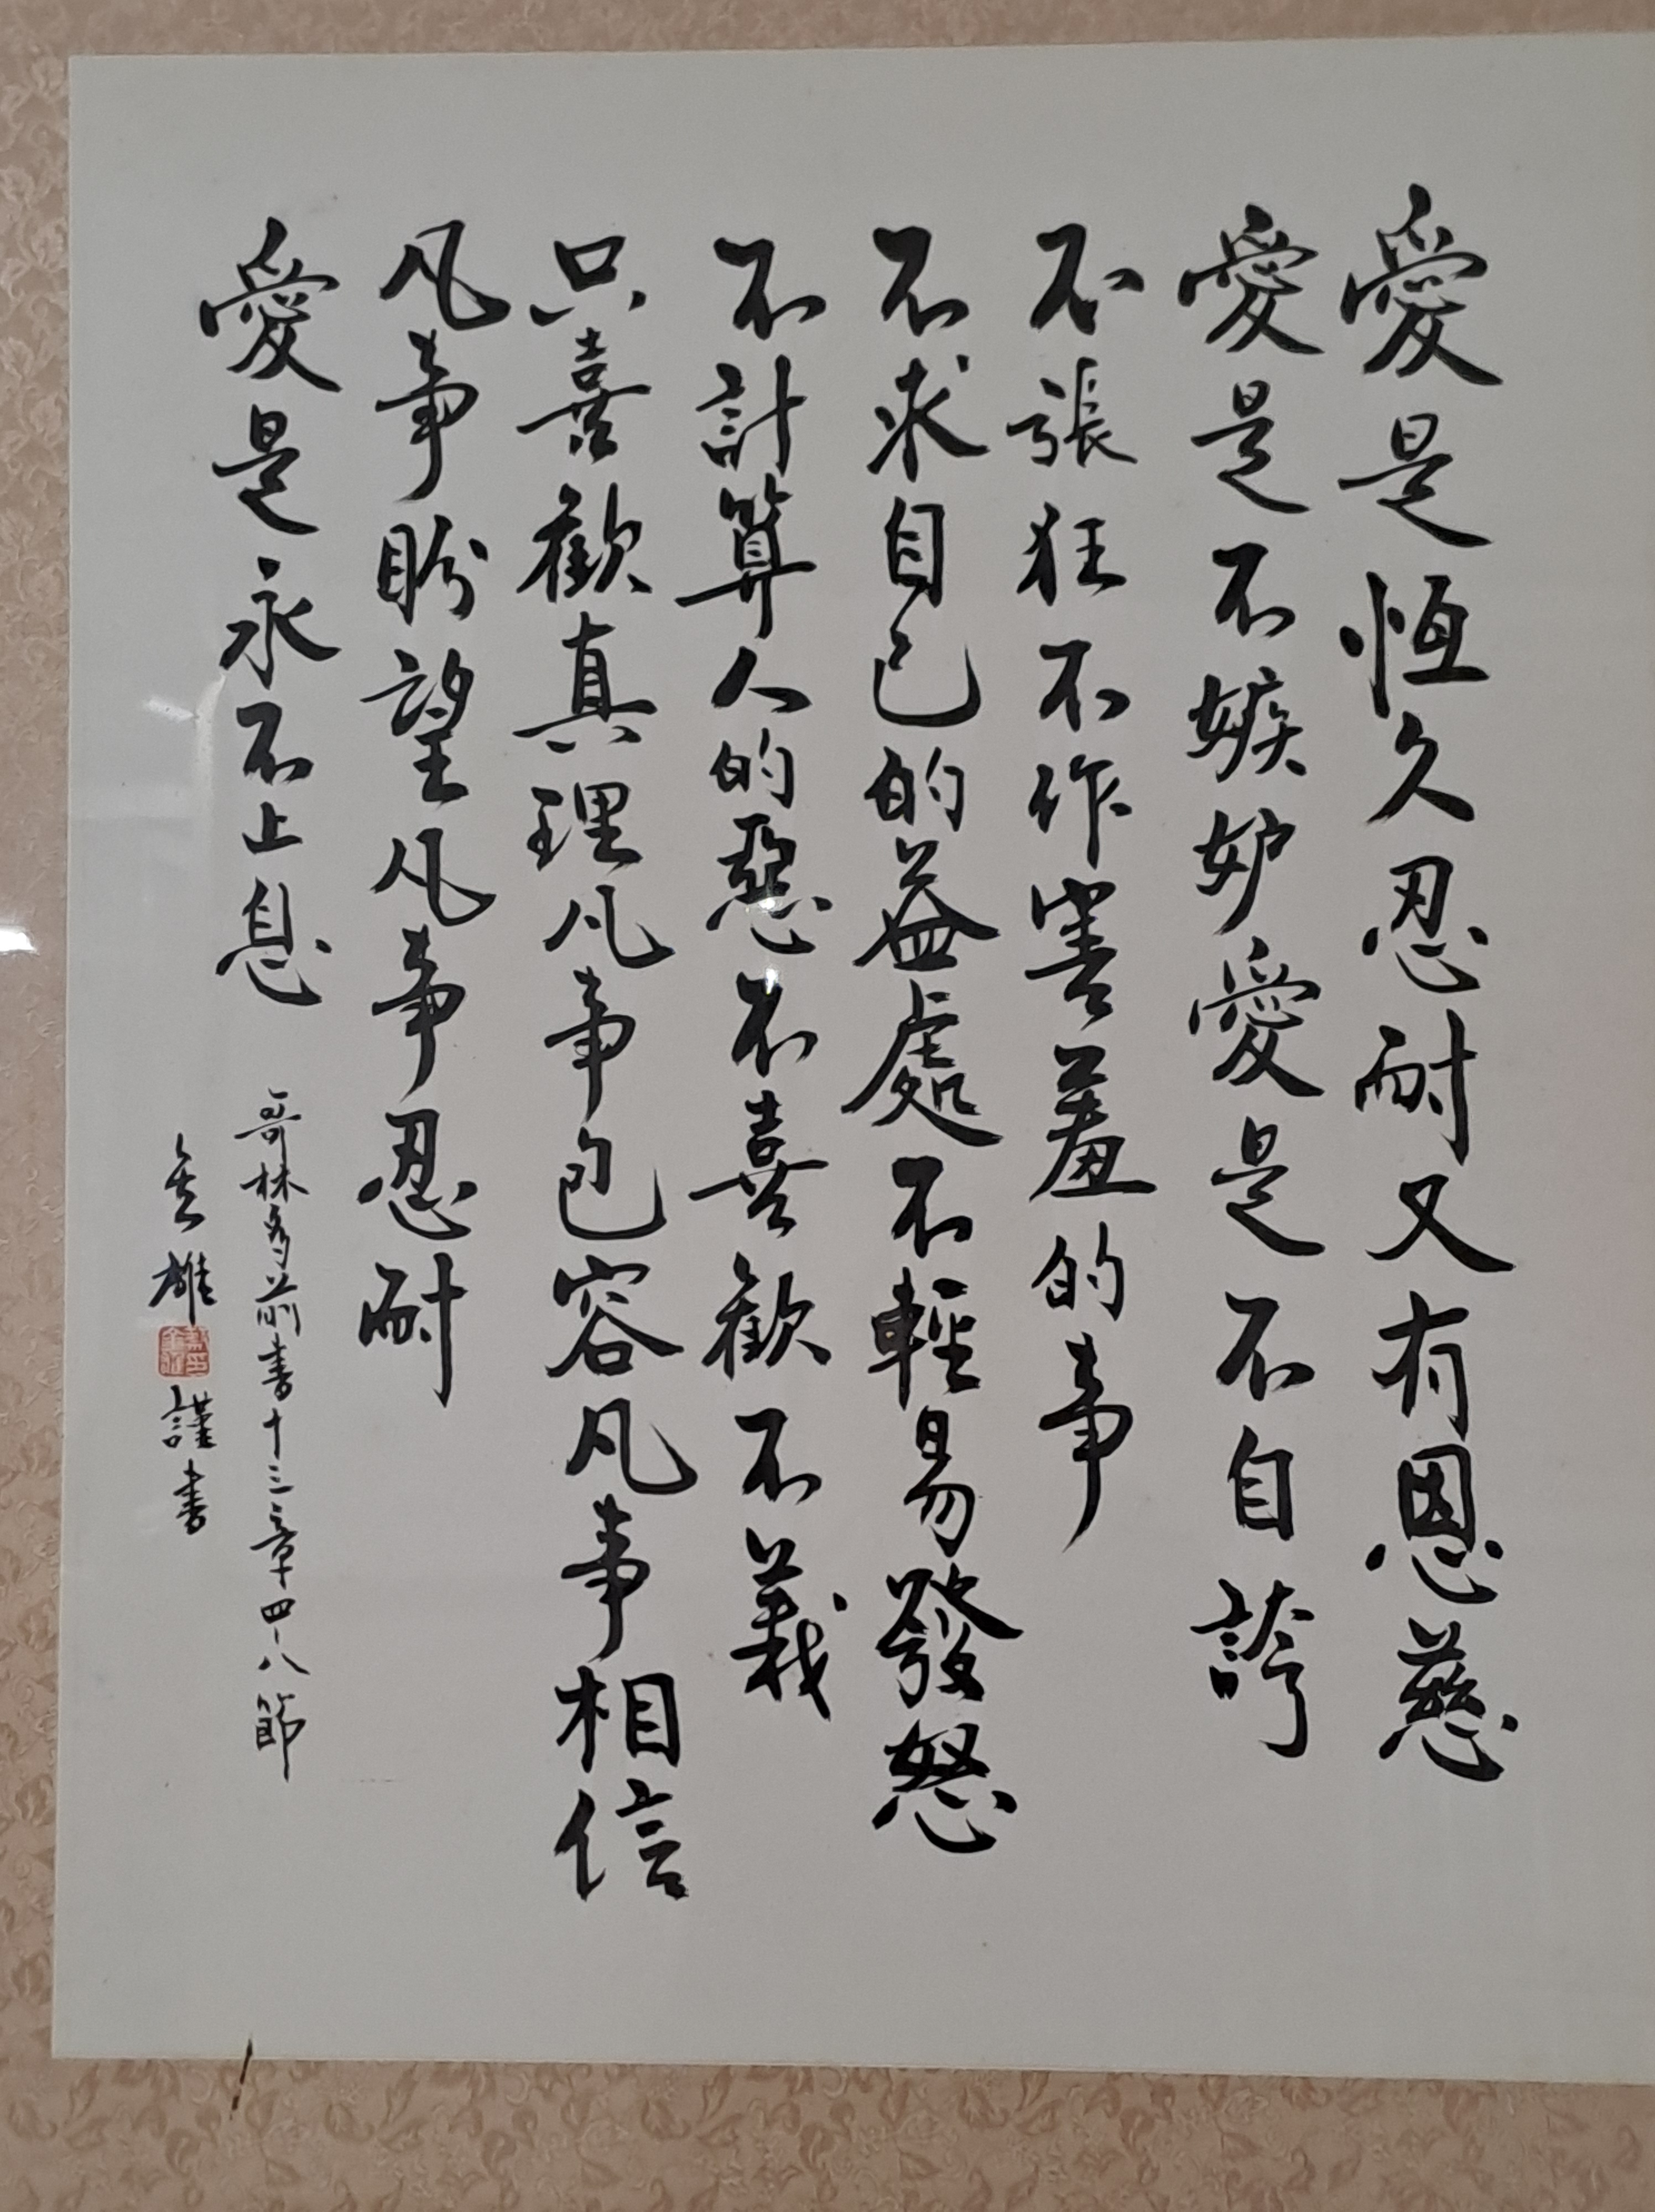 愛是恆久忍耐又有恩慈
愛是不嫉妒愛是不自誇
不張狂不作害羞的事
不求自己的益處不輕易發怒
不計算人的惡不喜歡不義
只喜歡真理凡事包容凡事相信
凡事盼望凡事忍耐
愛是永不止息
哥林多前書十三章四-八節
雄 謹書